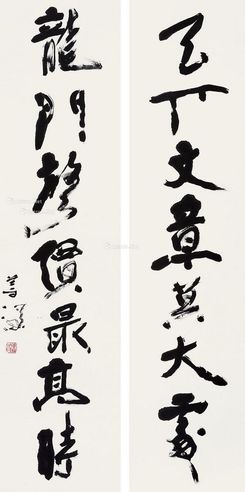 天下文章莫大處
龍門聲價最高時